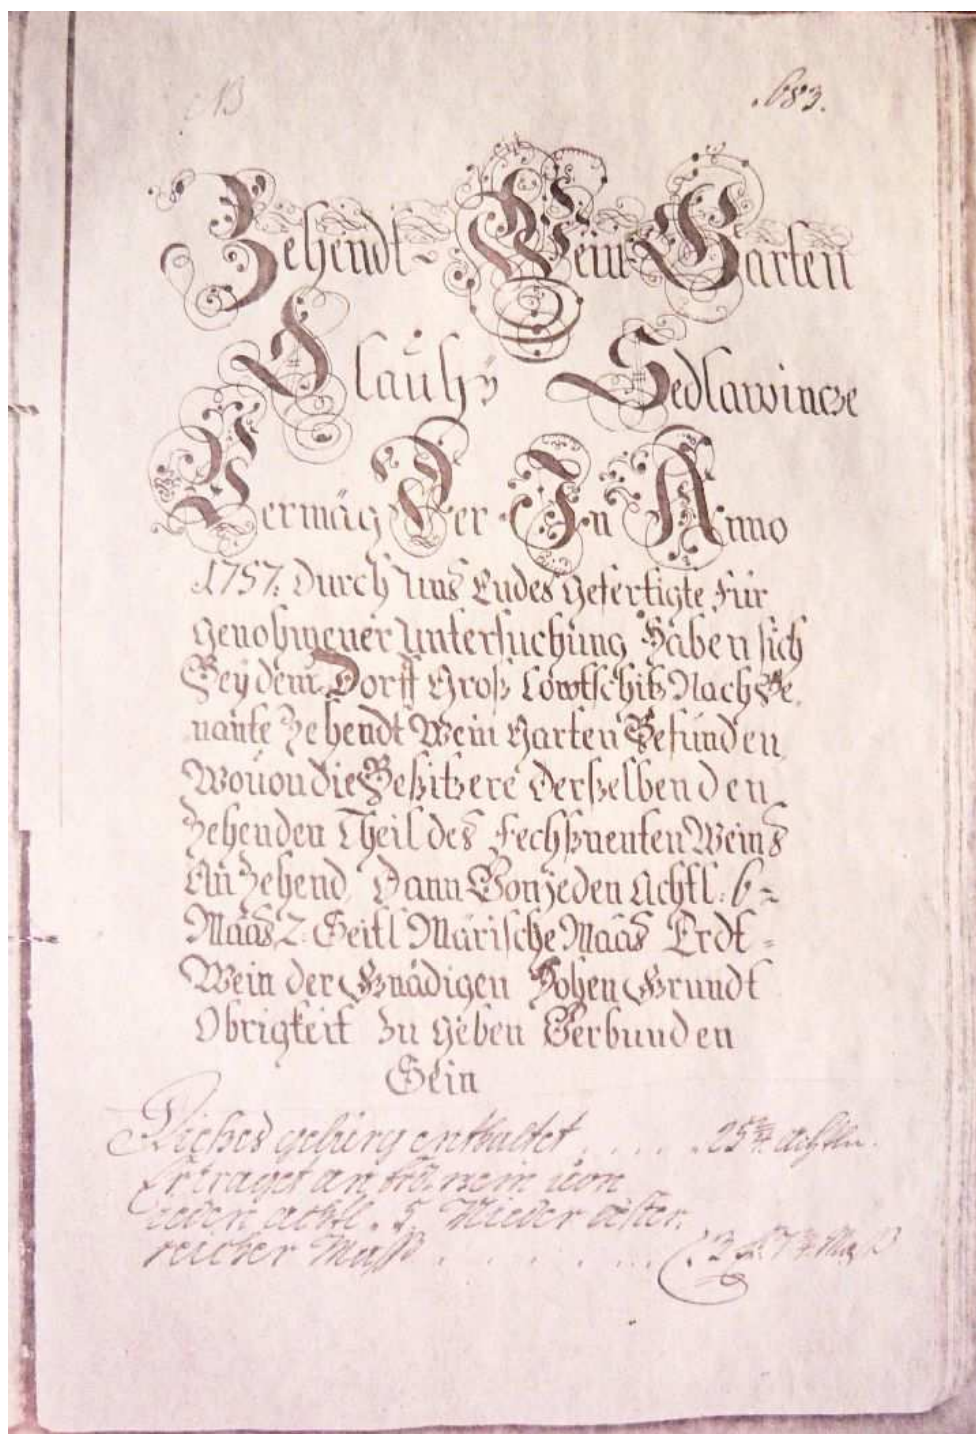 NB
683.
Zehendt-Wein-Garten
Dlauhÿ Sedlawincze
Vermäg Der In Anno
1757: Durch Uns Endes Gefertigte Für
Genohmener Untersuchung Haben sich
Beÿ dem Dorff Groß Lowtschitz Nach Be
nante Zehendt Wein Garten Befunden
Wouon die Besitzere Derselben den
Zehenden Theil des Fechsnenten Weins
An Zehend, Dann Von jeden Achtl: 6
Maas 2: Seitl Märische Maas Erdt=
Wein der Gnädigen Hohen Grundt
Obrigkeit Zu Geben Verbunden
Sein
Dießes gebürg enthaltet . . . . 25 achtln.
Ertraget an Erdwein von
jeden achtl. 5. Nieder oester
reicher Mass . . . . .